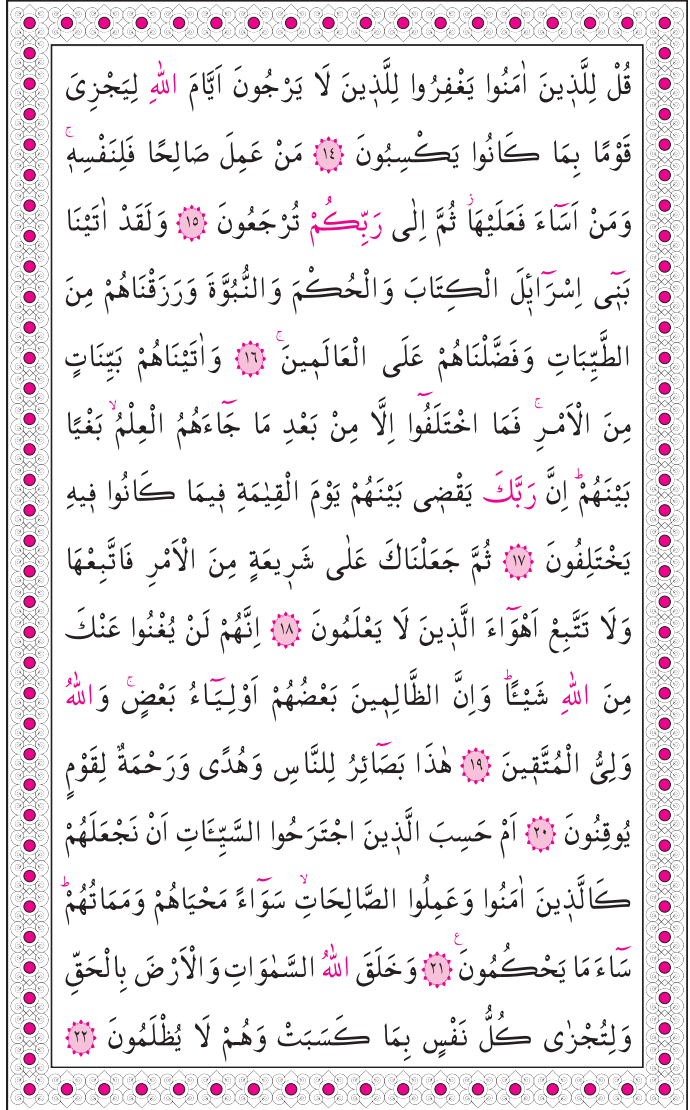 قُلْ لِلَّذ۪ينَ اٰمَنُوا يَغْفِرُوا لِلَّذ۪ينَ لَا يَرْجُونَ اَيَّامَ اللّٰهِ لِيَجْزِىَ
قَوْمًا بِمَا كَانُوا يَكْسِبُونَ ﴿١٤﴾ مَنْ عَمِلَ صَالِحًا فَلِنَفْسِه۪ۚ
وَمَنْ اَسَٓاءَ فَعَلَيْهَاۘ ثُمَّ اِلٰى رَبِّكُمْ تُرْجَعُونَ ﴿١٥﴾ وَلَقَدْ اٰتَيْنَا
بَن۪ٓى اِسْرَٓائ۪لَ الْكِتَابَ وَالْحُكْمَ وَالنُّبُوَّةَ وَرَزَقْنَاهُمْ مِنَ
الطَّيِّبَاتِ وَفَضَّلْنَاهُمْ عَلَى الْعَالَم۪ينَۚ ﴿١٦﴾ وَاٰتَيْنَاهُمْ بَيِّنَاتٍ
مِنَ الْاَمْرِۚ فَمَا اخْتَلَفُٓوا اِلَّا مِنْ بَعْدِ مَا جَٓاءَهُمُ الْعِلْمُۙ بَغْيًا
بَيْنَهُمْۜ اِنَّ رَبَّكَ يَقْض۪ى بَيْنَهُمْ يَوْمَ الْقِيٰمَةِ ف۪يمَا كَانُوا ف۪يهِ
يَخْتَلِفُونَ ﴿١٧﴾ ثُمَّ جَعَلْنَاكَ عَلٰى شَر۪يعَةٍ مِنَ الْاَمْرِ فَاتَّبِعْهَا
وَلَا تَتَّبِعْ اَهْوَٓاءَ الَّذ۪ينَ لَا يَعْلَمُونَ ﴿١٨﴾ اِنَّهُمْ لَنْ يُغْنُوا عَنْكَ
مِنَ اللّٰهِ شَيْـًٔاۜ وَاِنَّ الظَّالِم۪ينَ بَعْضُهُمْ اَوْلِيَٓاءُ بَعْضٍۚ وَاللّٰهُ
وَلِىُّ الْمُتَّق۪ينَ ﴿١٩﴾ هٰذَا بَصَٓائِرُ لِلنَّاسِ وَهُدًى وَرَحْمَةٌ لِقَوْمٍ
يُوقِنُونَ ﴿٢٠﴾ اَمْ حَسِبَ الَّذ۪ينَ اجْتَرَحُوا السَّيِّـَٔاتِ اَنْ نَجْعَلَهُمْ
كَالَّذ۪ينَ اٰمَنُوا وَعَمِلُوا الصَّالِحَاتِۙ سَوَٓاءً مَحْيَاهُمْ وَمَمَاتُهُمْۜ
سَٓاءَ مَا يَحْكُمُونَ۟ ﴿٢١﴾ وَخَلَقَ اللّٰهُ السَّمٰوَاتِ وَالْاَرْضَ بِالْحَقِّ
وَلِتُجْزٰى كُلُّ نَفْسٍ بِمَا كَسَبَتْ وَهُمْ لَا يُظْلَمُونَ ﴿٢٢﴾